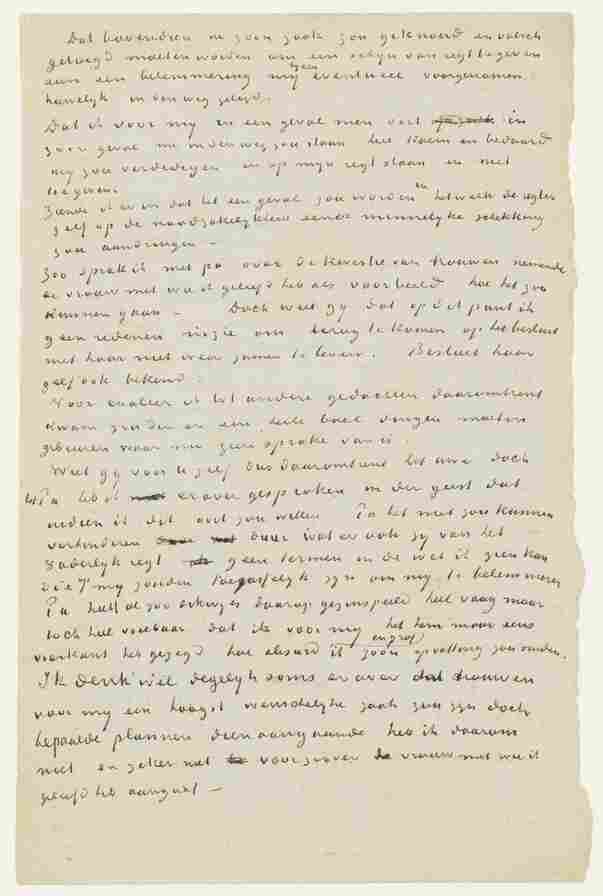 Dat bovendien in zoon zaak zou geknoeid en valsch
getuigd moeten worden om een schyn van regt te geven
aan een belemmering my tegen eventueel voorgenomen
huwelyk in den weg gelegd.
Dat ik voor my in een geval men dort in
zoon geval me in den weg zou staan heel kalm en bedaard
my zou verdedigen en op myn regt staan en niet
toegeven.
zelf op de noodzakelykheid eener minnelyke schikking
zou aandringen —
Zoo sprak ik met pa over de kwestie van trouwen nemende
de vrouw met wie ik geleefd heb als voorbeeld hoe het zou
kunnen gaan — Doch weet gy dat op dit punt ik
geen redenen zie om terug te komen op het besluit
met haar niet weer zamen te leven. Besluit haar
zelf ook bekend.
Voor en aleer ik tot andere gedachten daaromtrent
kwam zouden er een heele boel dingen moeten
gebeuren waar nu geen sprake van is.
Weet gy voor U zelf dus daaromtrent het ware doch
tot Pa heb ik erover gesproken in der geest dat
indien ik dit ooit zou willen Pa het niet zou kunnen
verhinderen daar wat er ook zy van het
vaderlyk regt geen termen in de wet ik zien kan
die op my zouden toepasselyk zyn om my te belemmeren
Pa heeft alzoo daarop gezinspeeld heel vaag maar
toch heel voelbaar dat ik voor my het hem maar eens
vierkant heb gezegd hoe absurd ik en grof zoon opvatting zou vinden.
Ik denk wel degelyk soms er over dat trouwen
voor my een hoogst wenschelyke zaak zou zyn doch
bepaalde plannen dien aangaande heb ik daarom
niet en zeker niet voor zoover de vrouw met wie ik
geleefd heb aangaat —